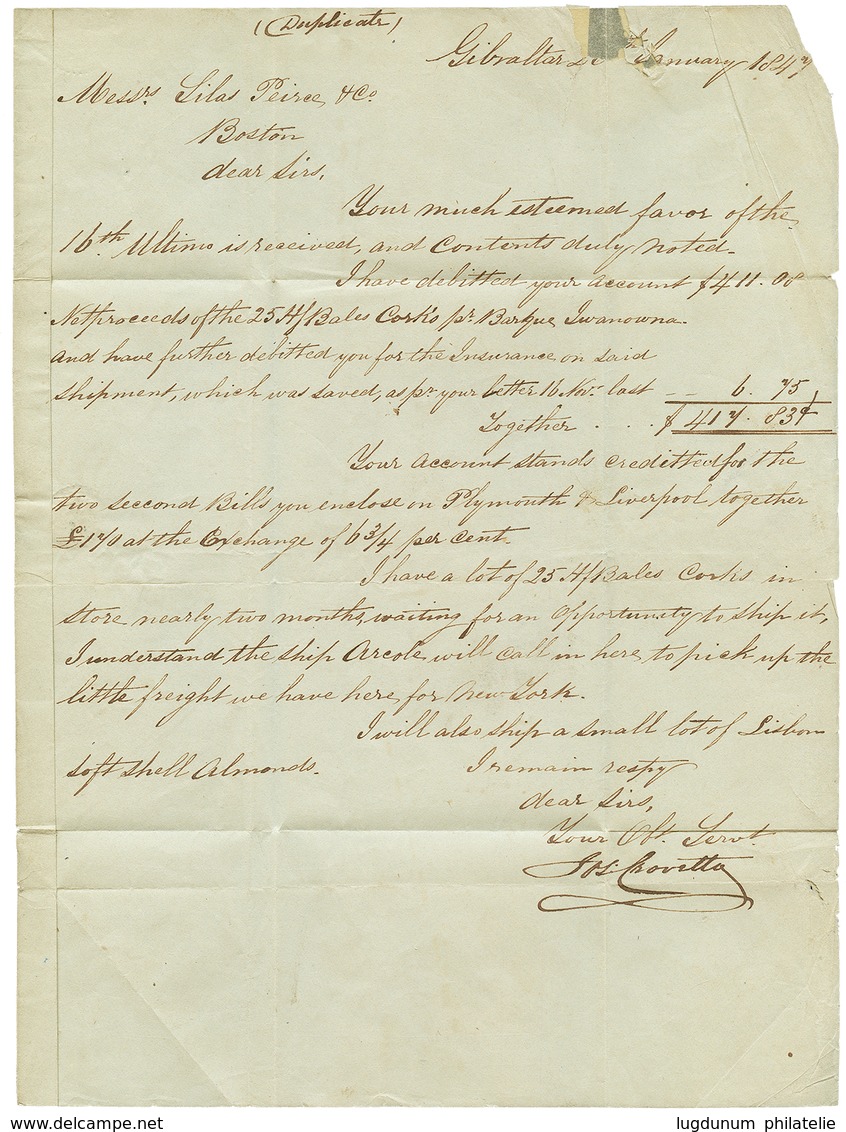 (Duplicate)
Gibraltar January 1847
Messrs. Silas Peirce & Co.
Boston
dear Sirs,
Your much esteemed favor of the
16th Ultimo is received, and Contents duly noted.
I have debitted your account $411.08
Netproceeds of the 25 Hf Bales Corks pr. Barque Iwanowna.
and have further debitted you for the Insurance on said
shipment, which was saved, as pr. your letter 16 Novr. last — 6.75
Together . . . $417.83
Your account stands creditted for the
two seccond Bills you enclose on Plymouth & Liverpool together
£170 at the Exchange of 6 3/4 per Cent.
I have a lot of 25 Hf Bales Corks in
store nearly two months, waiting for an opportunity to ship it,
I understand the ship Arcole will call in here to pick up the
little freight we have here for New York.
I will also ship a small lot of Lisbon
soft shell Almonds.
I remain respy
dear Sirs,
Your Obt. Servt.
Jos. Crovetto
www.delcampe.net
lugdunum philatelie